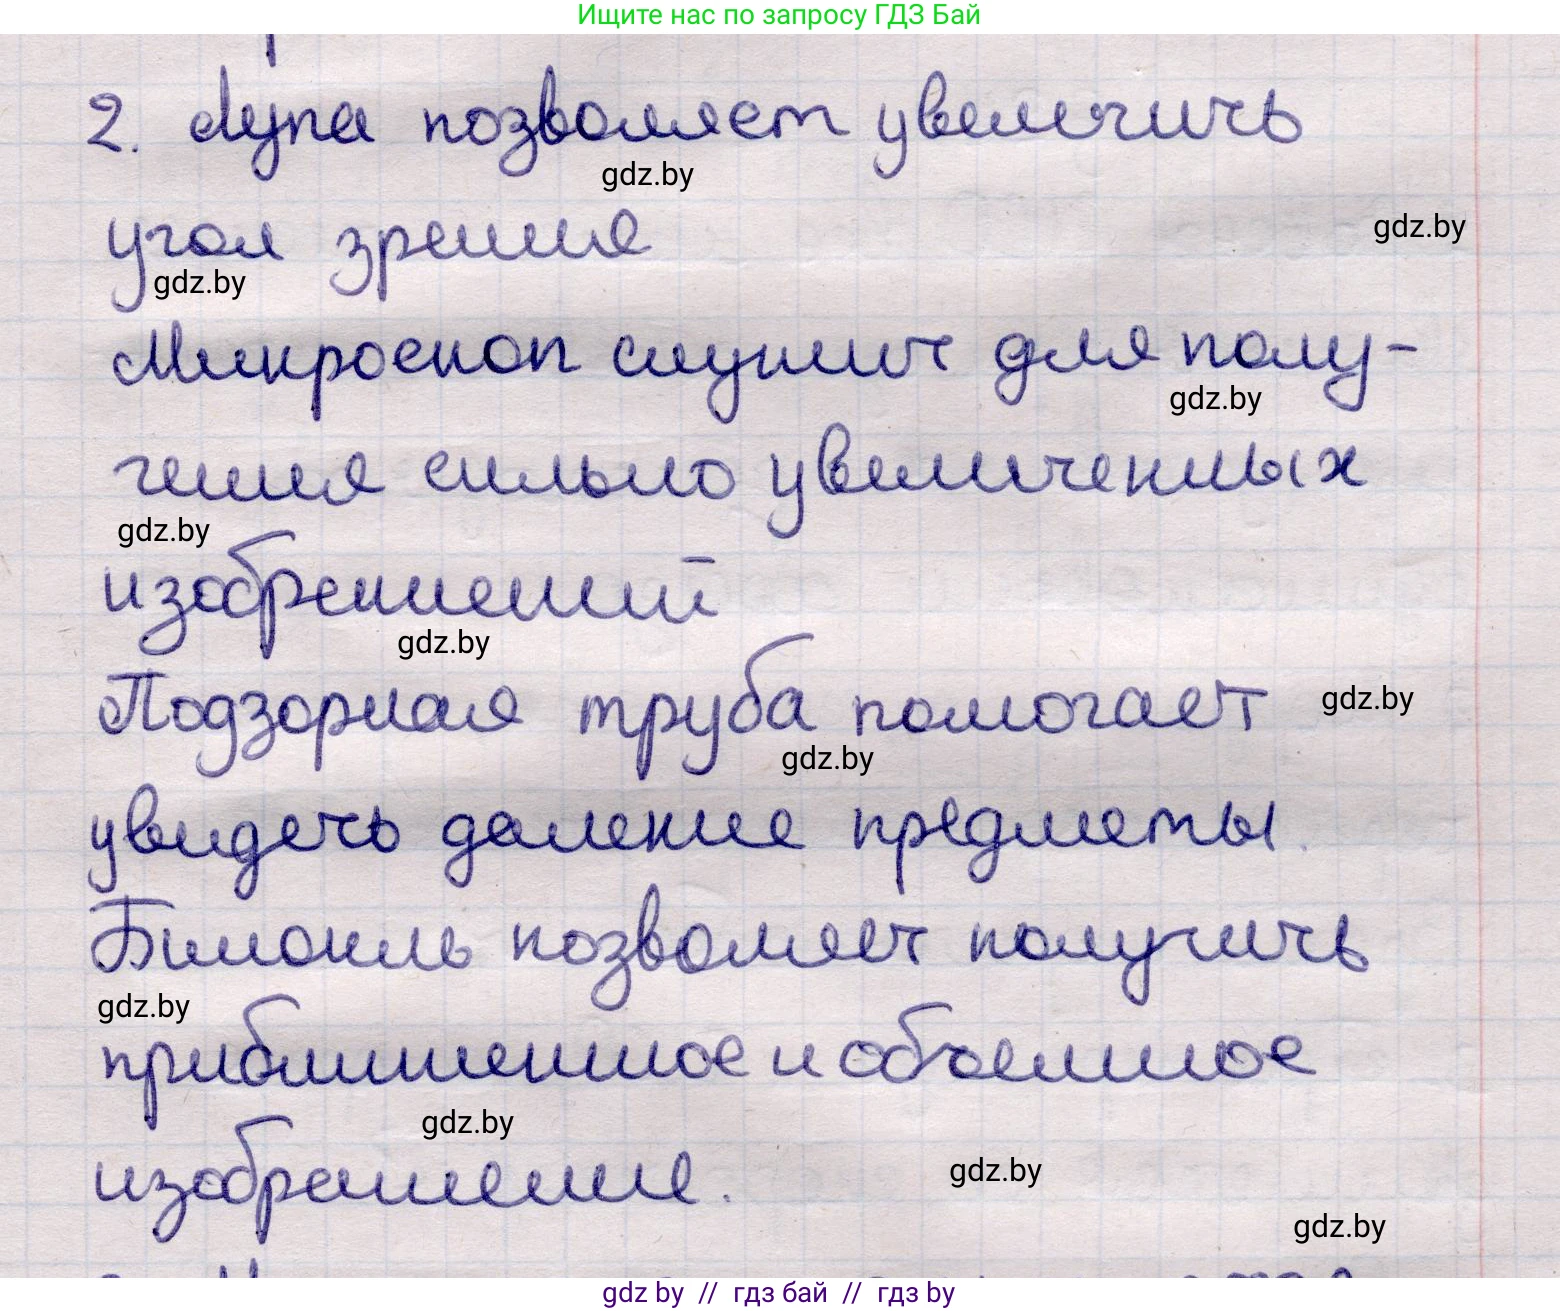 Ищите нас по запросу ГДЗ Бай
2. Лупа позволяет увеличить
gdz.by
угол зрения
gdz.by
gdz.by
Микроскоп служит для полу-
gdz.by
чения сильно увеличенных
gdz.by
изображений
gdz.by
Подзорная труба помогает
gdz.by
gdz.by
увидеть далекие предметы.
Бинокль позволяет получить
gdz.by
приближенное и объемное
gdz.by
изображение.
gdz.by
gdz.by
gdz by // гдз бай // гдз by